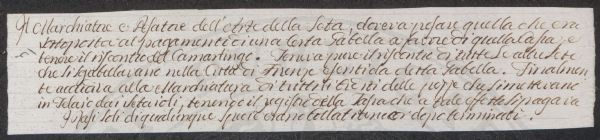 Il Marchiatore e Pesatore dell'Arte della Seta, doveva pesare quella che era
sottoposta al pagamento di una certa Gabella a favore di quella Cassa, e
tenere il riscontro del Camarlingo. Teneva pure il riscontro di tutte le altre Sete
che si gabellavano nella Città di Firenze esentida detta Gabella. Finalmente
accudiva alla Marchiatura di tutti i Pettini delle pezze che si mettevano
in Telaio dai Setaioli, tenendo il registro della Tassa che a tale effetto si pagava
I Pesi Soli di qualunque specie erano